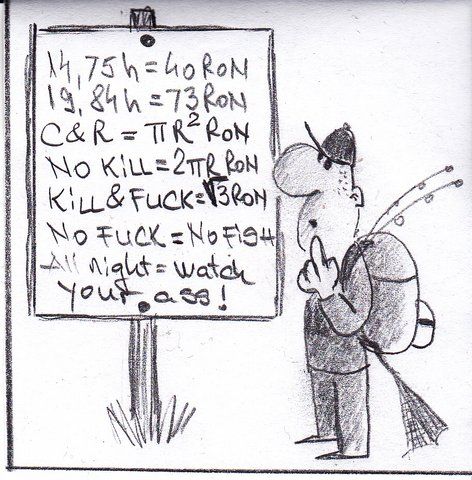 14,75h = 40 RON
19,84h = 73 RON
C & R = πR² RON
NO KiLL = 2πR RON
KiLL & FUCK = √3 RON
NO FUCK = NO FISH
All night = watch
your ass!